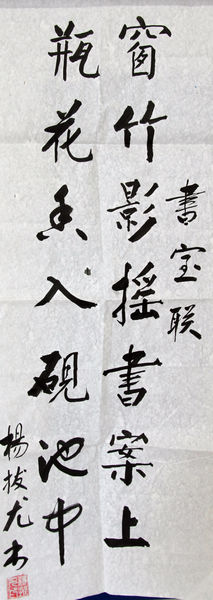 窗竹影摇書案上
書宝联
瓶花香入硯池中
楊拔尤书